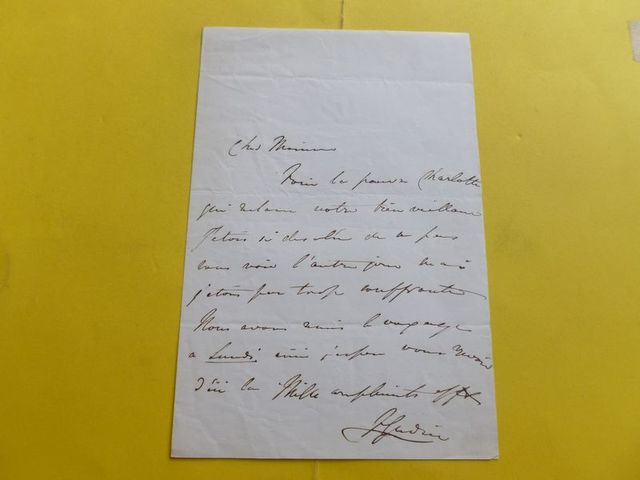 Cher Monsieur
Voici la pauvre Charlotte
qui réclame votre bienveillance
J'étais si désolée de ne pas
vous voir l'autre jour mais
j'étais par trop souffrante
Nous avons remis le voyage
a Lundi ainsi j'espère vous revoir
d'ici la Mille compliments aff
J Gudin